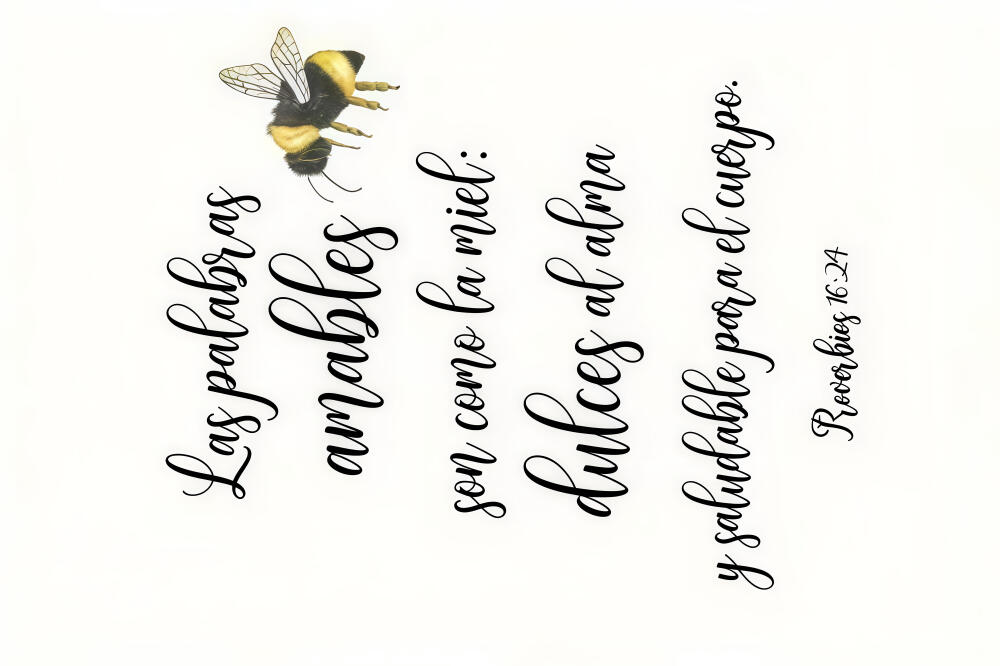 Las palabras
amables
son como la miel:
dulces al alma
y saludable para el cuerpo.
Proverbios 16:24